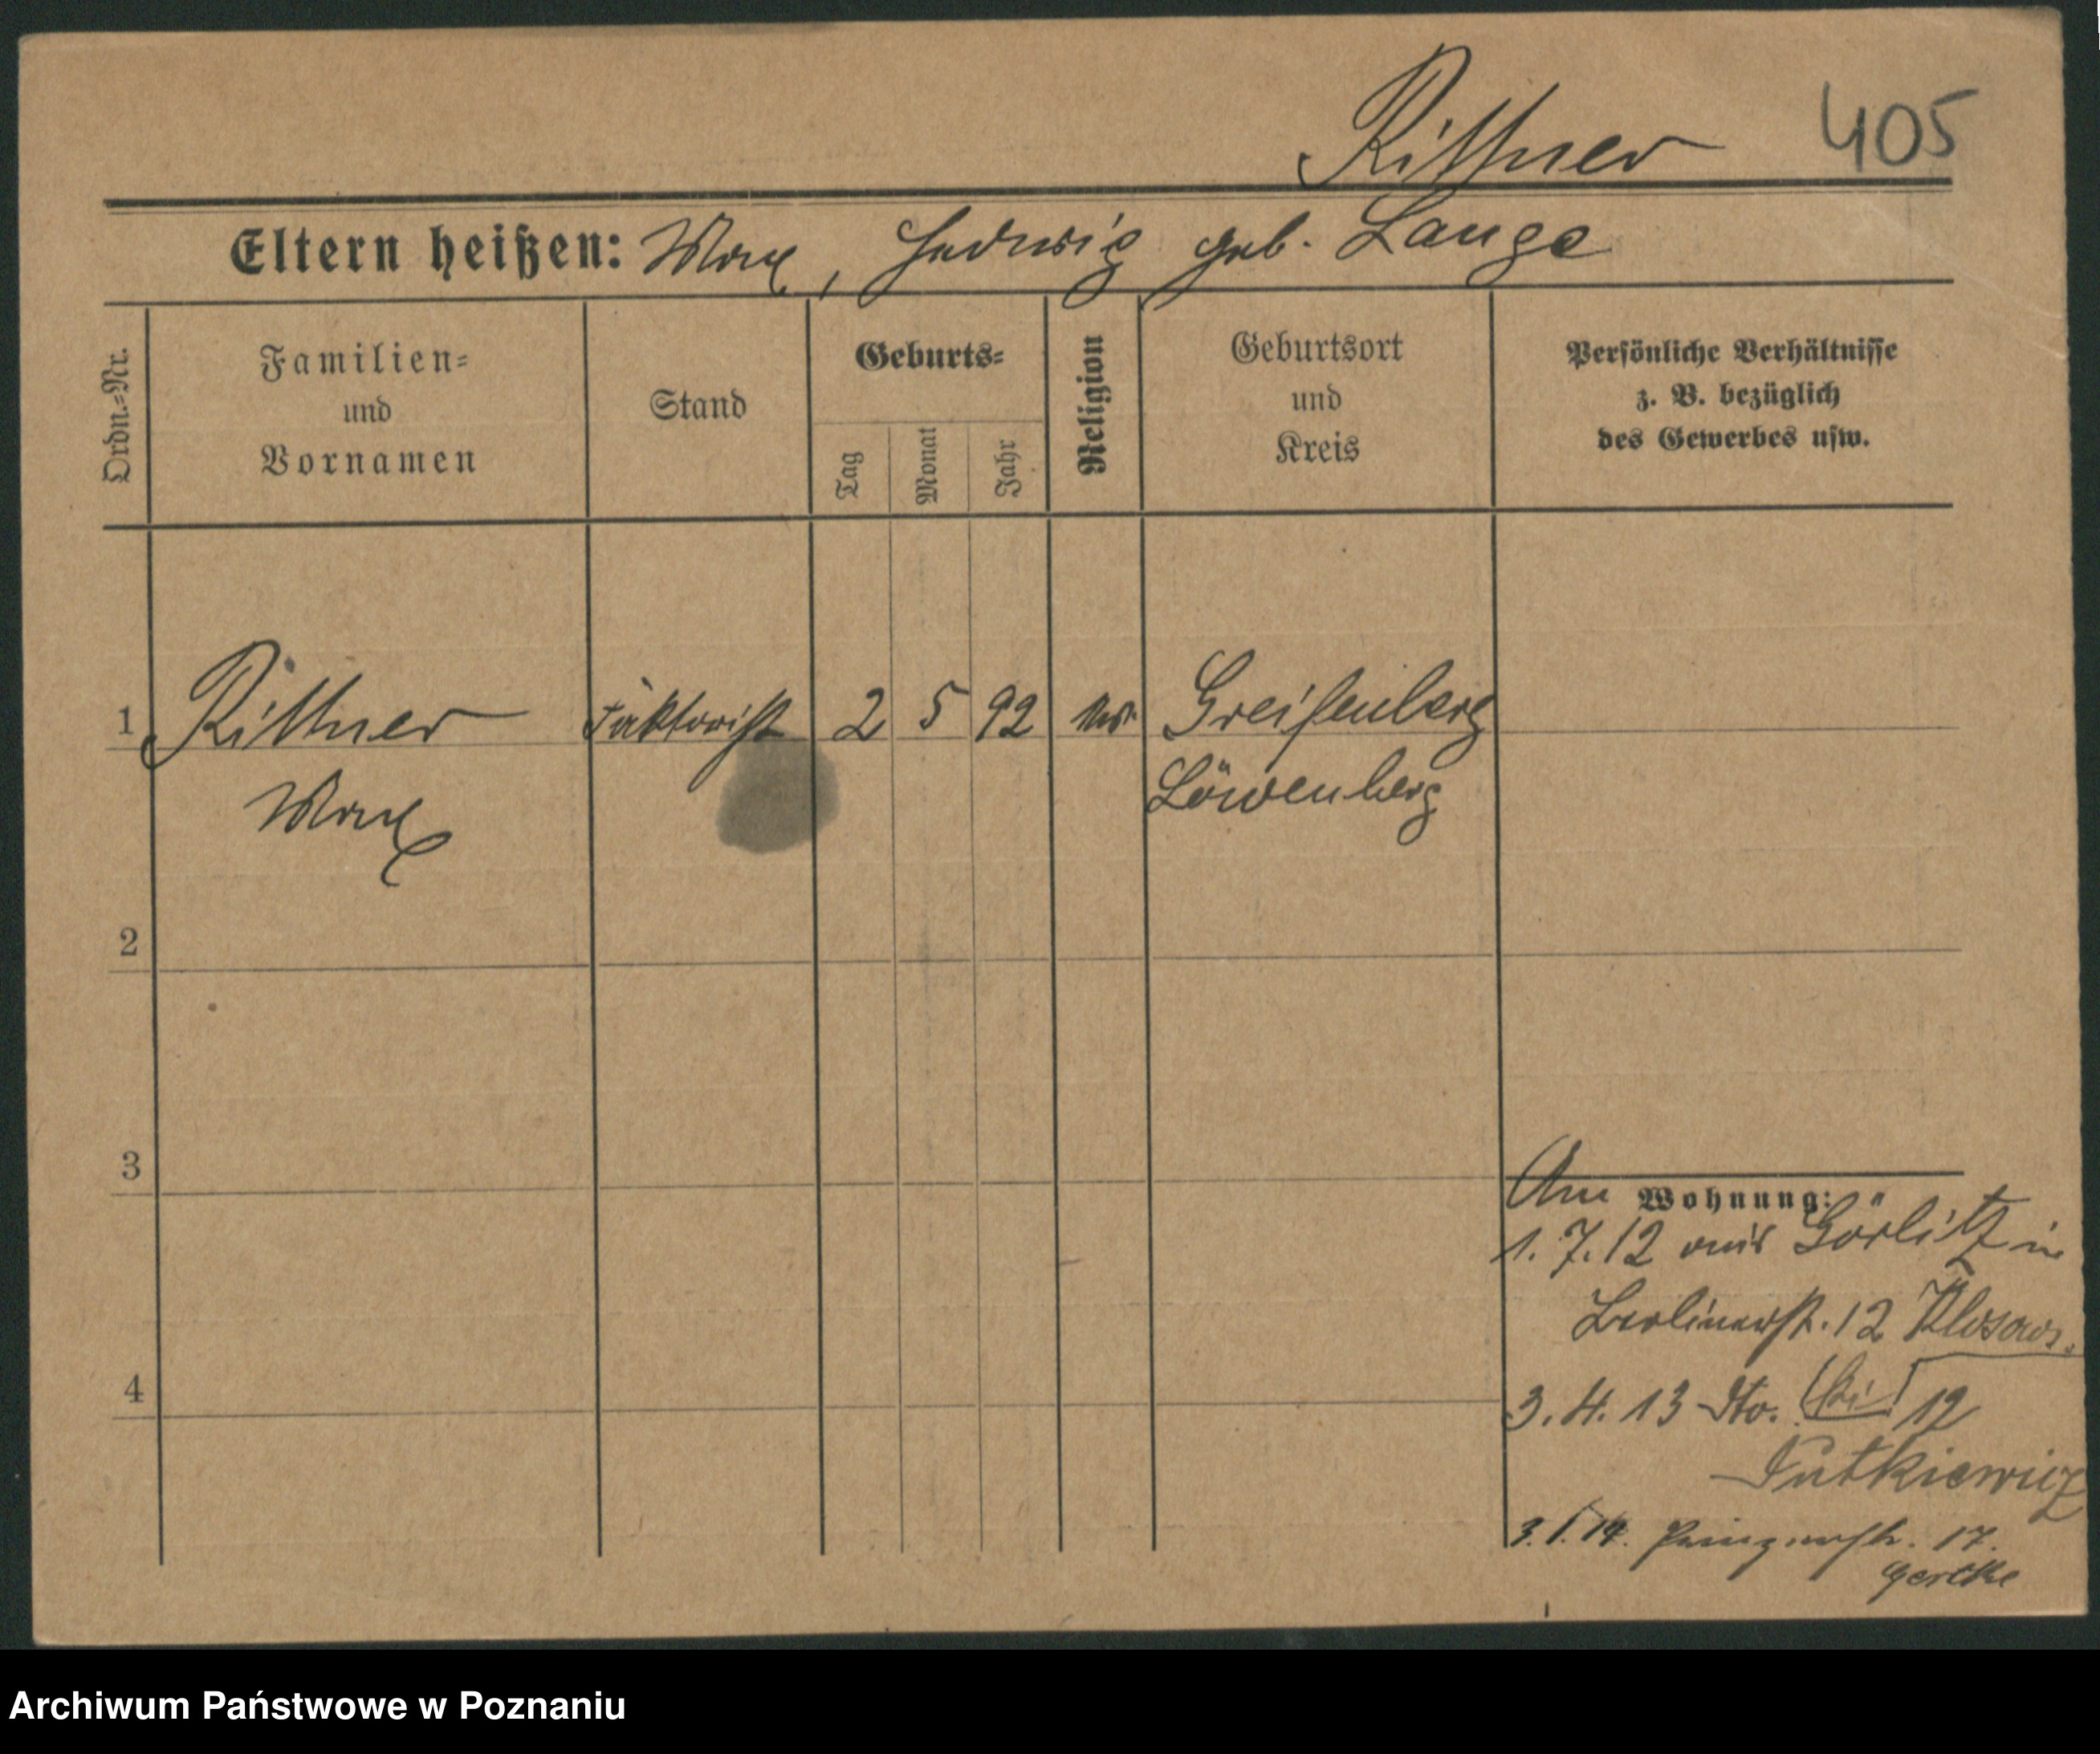 Rittner 405
Eltern heißen: Max, Hedwig geb. Lange
Ordn.=Nr.
Familien=
und
Vornamen
Stand
Geburts=
Tag
Monat
Jahr
Religion
Geburtsort
und
Kreis
Persönliche Verhältnisse
z. B. bezüglich
des Gewerbes usw.
1 Rittner 2 5 92 Greifenberg
Max Löwenberg
2
3
Am Wohnung:
1.7.12 aus Görlitz in
Berlinerstr. 12
4
3.4.13 dto. bei 12
Dutkiewicz
3.1.14. Prinzenstr. 17.
Archiwum Państwowe w Poznaniu